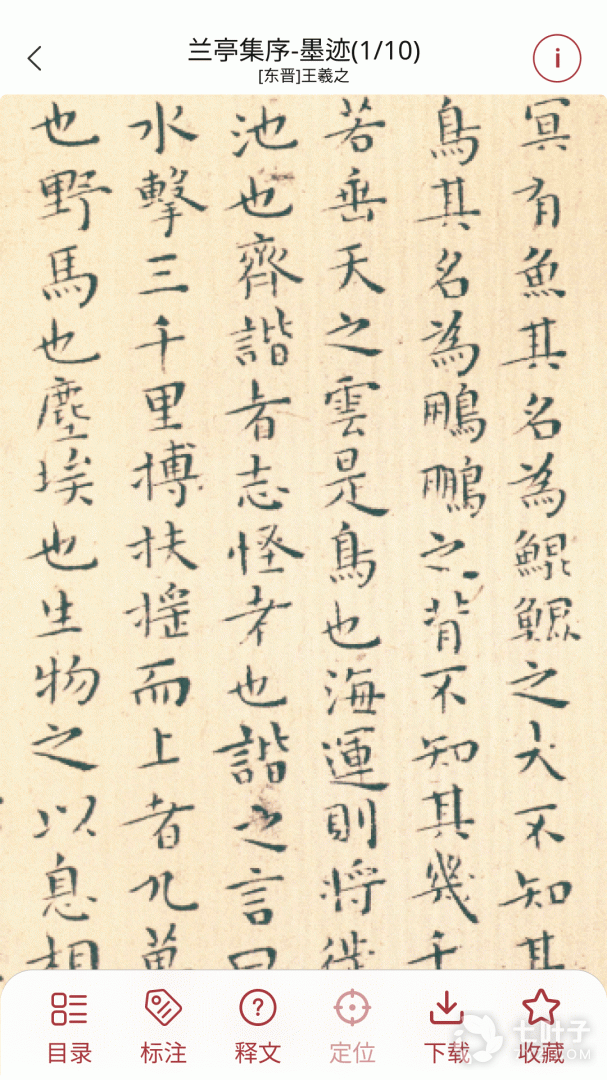 兰亭集序-墨迹(1/10)
[东晋]王羲之
冥有魚其名為鯤鯤之大不知其
鳥其名為鵬鵬之背不知其幾千
若垂天之雲是鳥也海運則將徙
池也齊諧者志怪者也諧之言曰
水擊三千里搏扶搖而上者九萬
也野馬也塵埃也生物之以息相
目录 标注 释文 定位 下载 收藏
七叶子